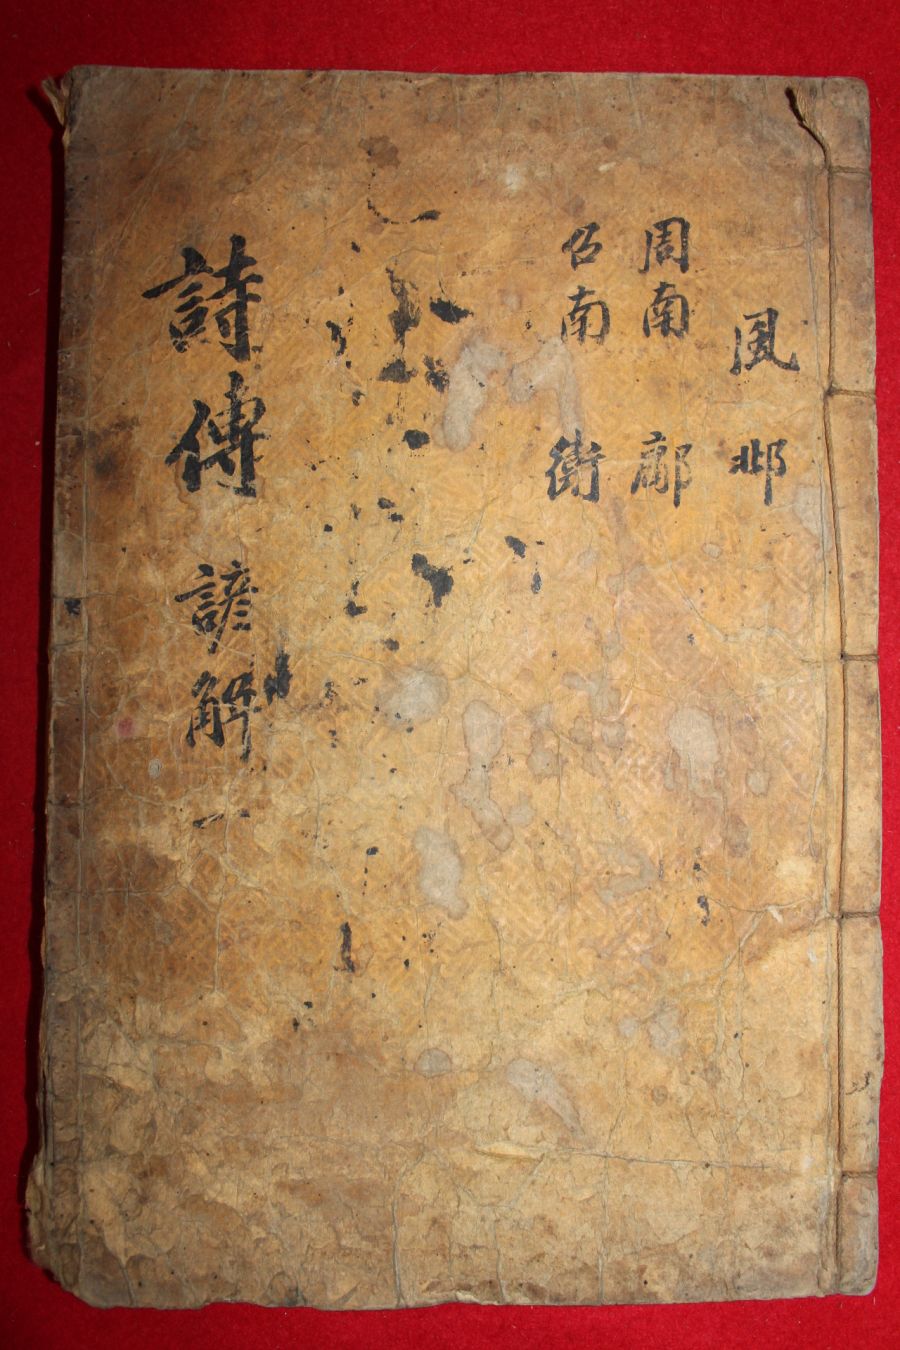 風 邶
周南 鄘
召南 衛
詩傳 諺解 一